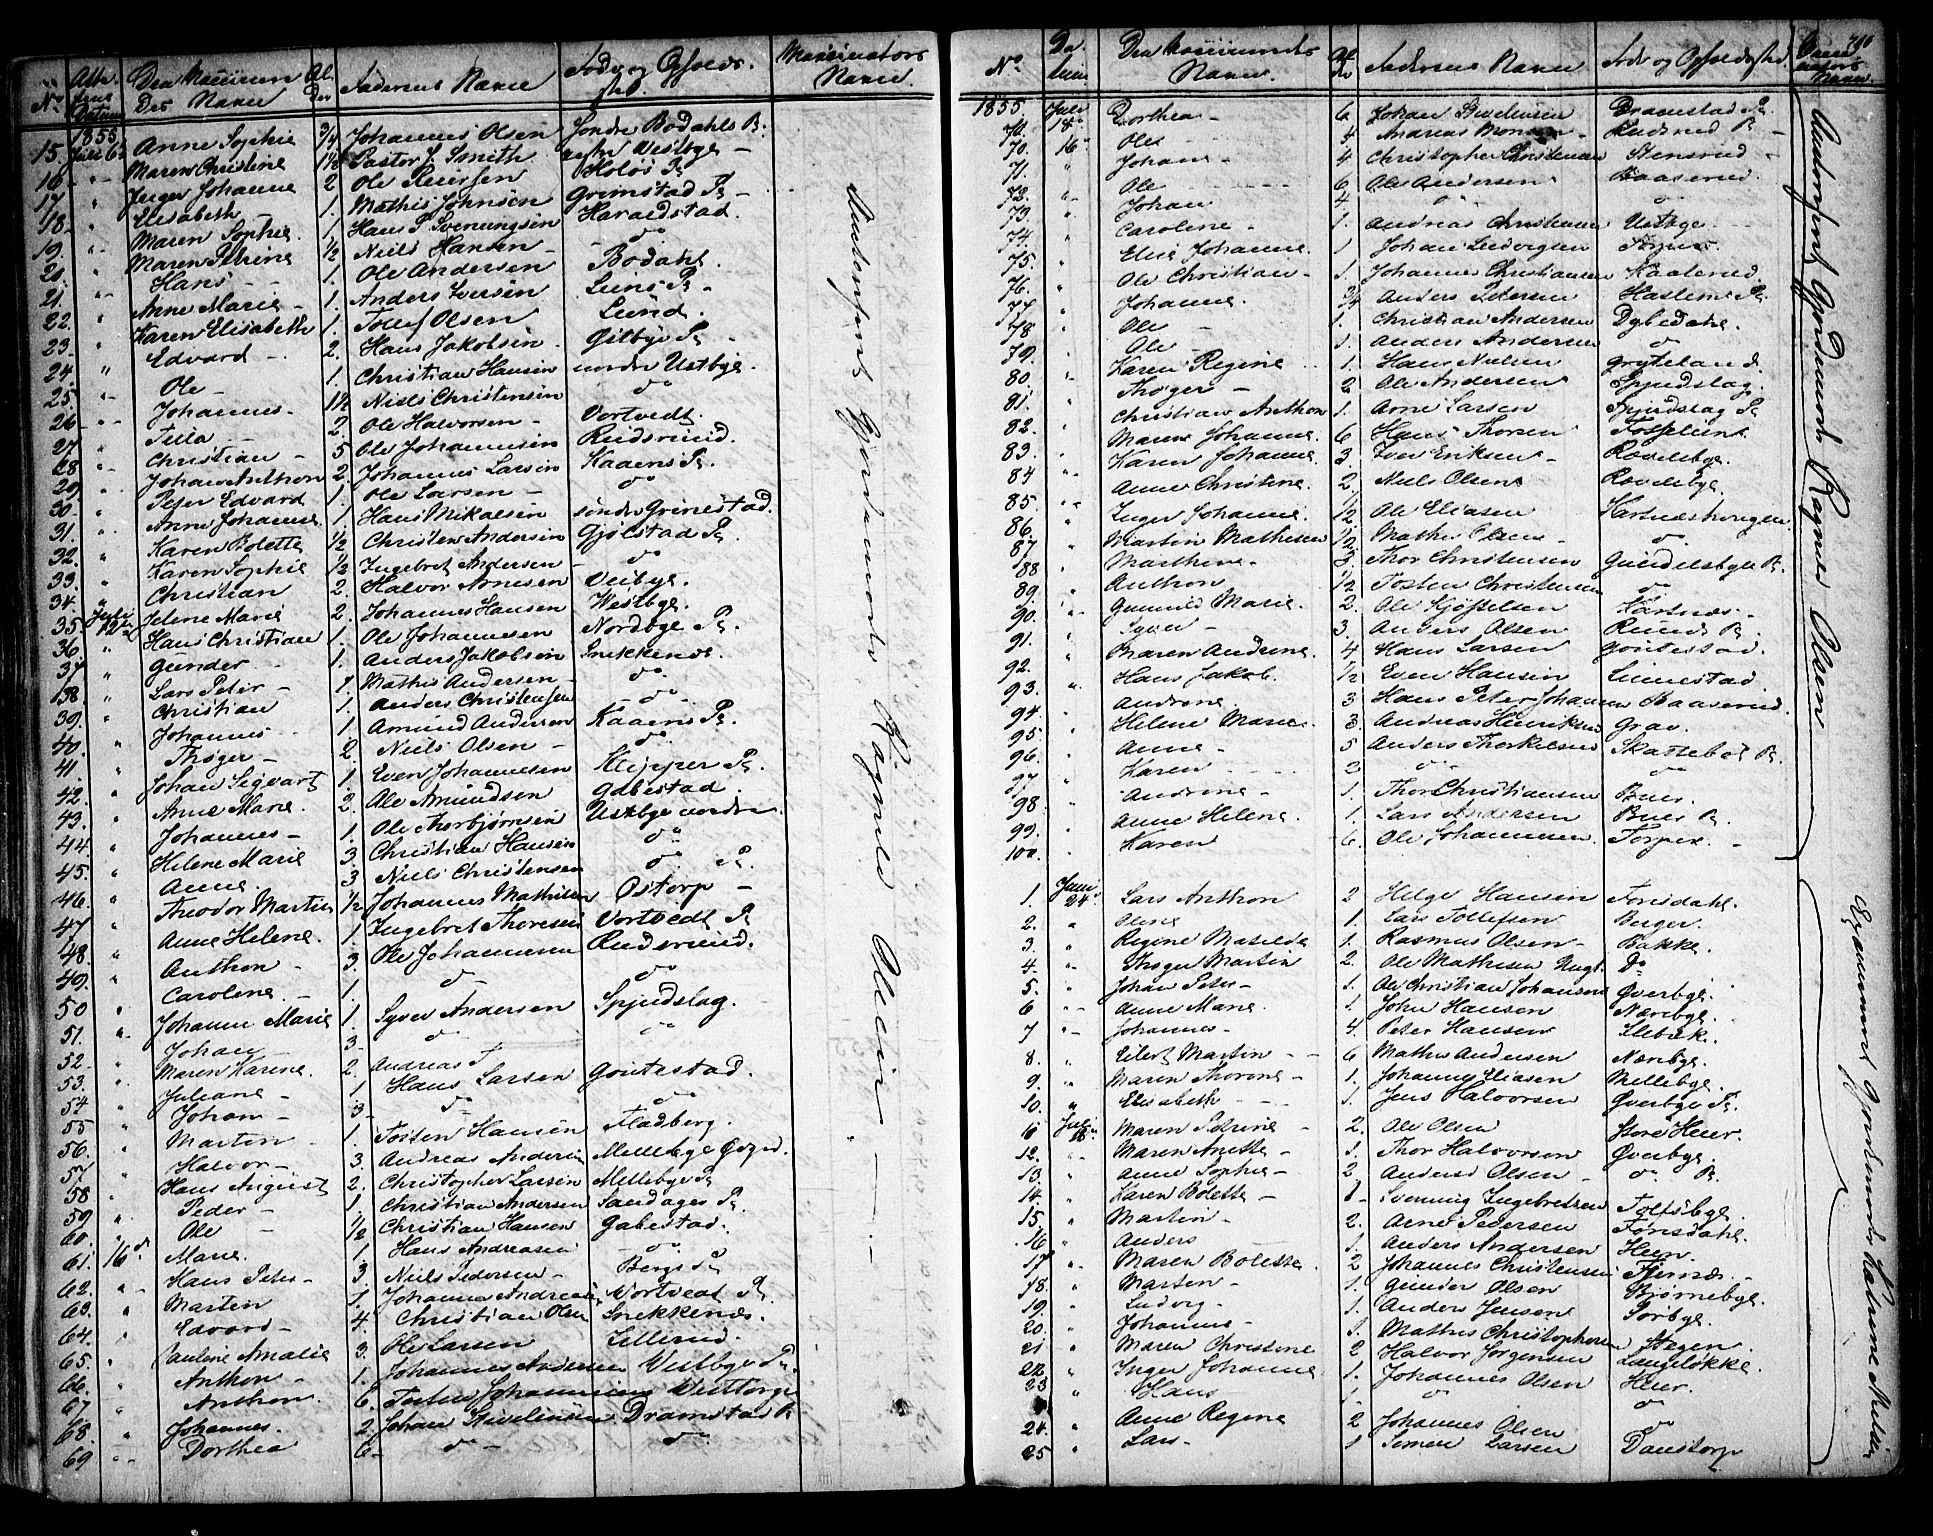 No Atte stens Datum Den Vaccineredes Navn Alder Faderens Navn Føde og Opholdssted Vaccinators Navn
1855
15. Juli 6 Anne Sophie 3/4 Johannes Olsen Søndre Bodahls P.
16 " Maren Christine 1½ Pastor J. Smith Vestbye
17 " Inger Johanne 2 Ole Holøs P.
18. " Elisabeth 1. Mathis Johnsen Grimstad P.
19. " Maren Sophie 1. Hans P. Svenungsen Haraldstad.
20. " Maren Petrine ½ Niels Hansen do
21. " Hans 1 Ole Andersen Bodahl.
22. " Anne Marie 1. Anders Iversen Lunds P.
23. " Karen Elisabeth 1. Tollef Olsen Lund.
24. " Edvard 2. Hans Jakobsen Gilbye P.
25. " Ole 1. Christian Hansen nordre Ustbye.
26. " Johannes 1½ Niels Christensen do
27 " 2. Ole Halvorsen Vortvedt.
28 " Christian 5 Ole Johannesen Rudsrud.
29. " Johan Anthon 2. Johannes Larsen Kaaens P.
30. " Peter Edvard 1. Ole Larsen do
31. " Anne Johanne 1. Hans Mikalsen søndre Grimestad.
32. " Karen Bolette ½ Christen Andersen Gjølstad P.
33. " Karen Sophie ½ Ingebret Andersen do
34. " Christian 2. Halvor Arnesen Veibye.
35. Juli 12 Helene Marie 2. Johannes Hansen Westbye.
36. " Hans Christian 1. Ole Johannesen Nordbye P.
37 " Gunder 1. Anders Jakobsen Snikkenæs.
38 " Lars Peter 1. Mathis Andersen do
39. " Christian 1. Anders Christensen do
40. " Johannes 1 Amund Andersen Kaaens P.
41 " Thøger 2. Niels Olsen do
42. " Johan Sigvart 1. Even Johannesen Klipper P.
43. " Anne Marie. 2. Ole Amundsen Gabestad.
44. " Johannes 1. Ole Thorbjørnsen Ustbye nordre
45. " Helene Marie 3. Christian Hansen do
46. " Anne. 3. Niels Christensen do P.
47 " Theodor Martin ½ Johannes Mathisen Ostorp
48. " Anne Helene. 1. Ingebret Thoresen Vortvedt P.
49. " Anthon 3. Ole Johannesen Rudsrud.
50 " Caroline. 1. do do
51. " Johanne Marie 1. Syver Andersen Spjudslag.
52. " Johan 3. do do
53. " Maren Karine. 2. Andreas T.
54 " Juliane 1 Hans Larsen Goutestad.
55 " Johan 3 do do
56. " Martin 1. Tosten Hansen Fladberg.
57 " Halvor 3. Andreas Andersen Mellebye
58 " Hans August 2. Christopher Larsen Mellebye P.
59 " Peder 1 Christian Andersen Sandager P.
60. " Ole ½ Christian Hansen Gabestad.
61. 16 d. Marie. 1. Hans Andreasen do
62. " Hans Peter 3 Niels Pedersen Bergs P.
63. " Martin 1. Johannes Andreasen Vortvedt P.
64. " Edvard 4. Christian Olsen Snikkenæs.
65. " Pauline Amalie 3. Ole Larsen Lillerud.
66. " Anthon 1. Johannes Andersen Vestbye P.
67 " Anthon 6. Tosten Johannesen
68 " Johannes. 2. Johan Severinsen Dramstad P.
69 " Dorthea 6 do do
Attesteret Gjordemoder Ragnes Olsen
No Datum Den Vaccineredes Navn Alder Faderens Navn Føde og Opholdssted Vaccinators Navn
1855. Juli
18 Dorthea 6 Johan Severinsen Dramstad P.
70. 16 Ole 4 Andreas Rudsrud P.
71. " Johan 4 Christopher Christensen Stensrud
72. " Ole 6 Ole Andersen Baaserud.
73. " Johan 4 do do
74. " Caroline 1. Andreas Christensen Ustbye
75. " Elise Johanne. 1 Johan Ludvigsen Torper
76. " Ole Christian 1. Johannes Christiansen Kaalerud.
77 " Johanne. 3/4 Anders Petersen Haslene P.
78. " Ole 1. Christian Andersen Dybedahl.
79. " Ole 1. Anders Andersen do
80 " Karen Regine 1. Hans Nielsen Gryteland.
81. " Thøger 2 Ole Andersen Spjudslag.
82. " Christian Anthon 1. Arne Larsen Spjudslag P.
83. " Maren Johanne. 6 Hans Thorsen Fosselund.
84 " Karen Johanne. 3. Iver Eriksen Ravelsbye.
85. " Anne Christine. 2. Niels Olsen Ravelsbye.
86. " Inger Johanne. ½ Ole Eliasen
87 " Martin Mathisen ½ Mathis Olsen do
88 " Marthine. 3. Thor Christensen P.
89. " Anthon ½ Tosten Christensen do
90. " Gunnild Marie. 2. Ole Kjøstelsen Hartnæs
91. " Syver 3. Anders Olsen Runds P.
92. " Maren Andrine. 4 Hans Larsen Goutestad.
93. " Hans Jakob. ½ Even Hansen Linnestad
94. " Andrine 3 Hans Peter Johansen Baaserud
95 " Helene Marie 3. Andreas Henriksen Grav.
96. " Anne 5 Anders Thorkelsen Skattebøl P.
97 " Karen 3 do do
98 " Andrine 1. Thor Christiansen Buer.
99. " Anne Helene. 1. Lars Andersen Buer P.
100. " Karen 6. Ole Johannesen Torper.
Attesteret Gjordemoder Ragnes Olsen
1. Juni 24 Lars Anthon 2 Helge Hansen Forsdahl.
2. " Oline 1. Lars Tollefsen Berger.
3. " Regine Matilde 1. Rasmus Olsen Bakke.
4. " Thøger Martin 2. Ole Mathisen Ungt. Do
5. " Johan Peter 1. Ole Christian Johansen Øverbye.
6 " Anne Marie. 1. John Hansen Nærebye.
7 " Johannes 4. Peter Hansen Slebæk.
8. " Eilert Martin 6 Mathis Andersen Nærebye.
9. " Maren Thorine 1. Johannes Eliasen Mellebye.
10. " Elisabeth 1. Jens Halvorsen Øverbye P.
11 Juli 16 Maren Petrine 2. Ole Olsen Store Heier.
12. " Maren Anette 1. Thor Halvorsen Øverbye.
13. " Anne Sophie 2 Anders Olsen do P.
14. " Karen Bolette 1 Svenning Ingebretsen Toltsbye.
15. " Martin 2. Arne Pedersen Forsdahl.
16 " Anders 1. Anders Andersen Heen.
17 " Maren Bolette. 2 Johannes Christensen Fjernæs
18. " Martin 1. Gunder Olsen Bjørnebye.
19. " Ludvig 1. Anders Jensen Sorbye.
20. " Johannes 1. Mathis Christophersen Stegen
21 " Maren Christine 2 Halvor Jørgensen Langeløkke.
22. " Inger Johanne 1. Johannes Olsen Heier.
23 " Hans 1. do do
24. " Anne Regine 2 Johannes Olsen do
25 " Lars 1 Simen Larsen Danstorp
Examineret Gjordemoder Katrine Nielsen